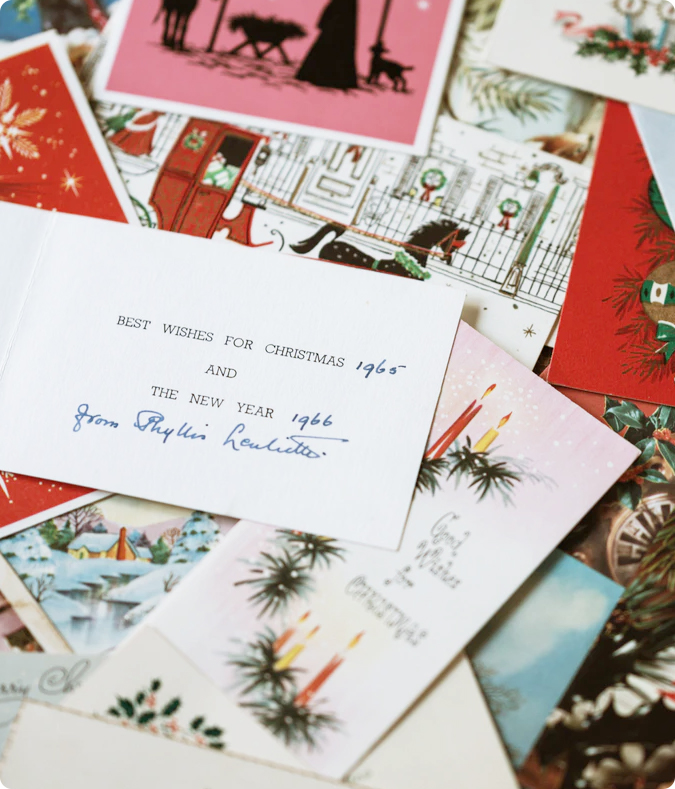 BEST WISHES FOR CHRISTMAS 1965
AND
THE NEW YEAR 1966
from Phyllis
Good
Wishes
for
CHRISTMAS